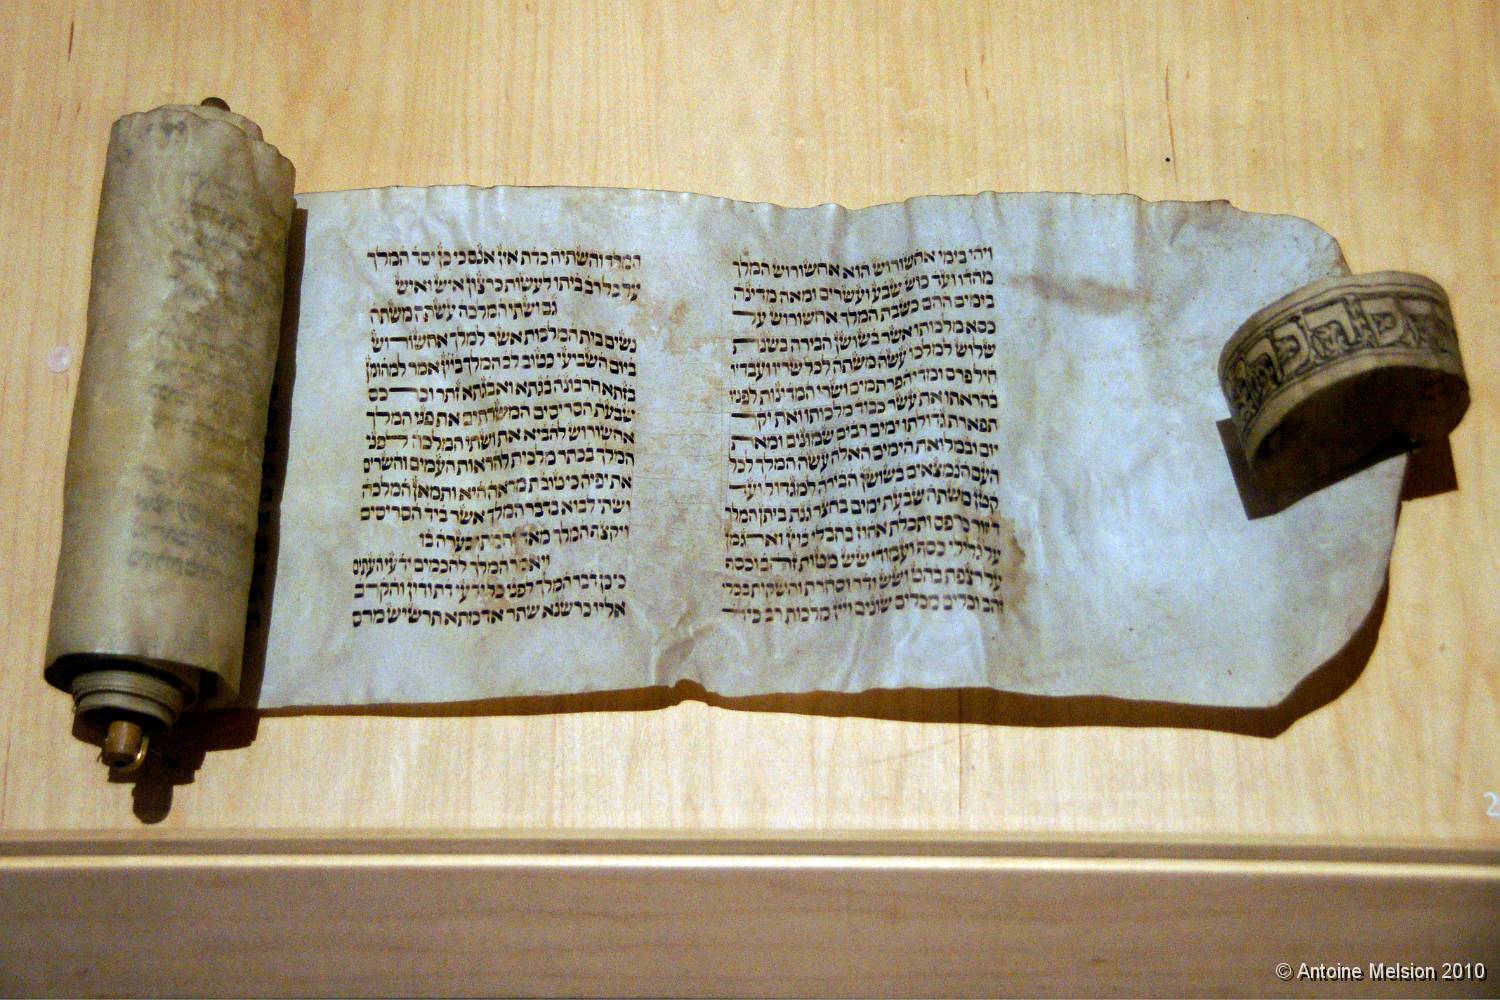 ויהי בימי אחשורוש הוא אחשורוש המלך
מהדו ועד כוש שבע ועשרים ומאה מדינה
בימים ההם כשבת המלך אחשורוש על
כסא מלכותו אשר בשושן הבירה בשנת
שלוש למלכו עשה משתה לכל שריו ועבדיו
חיל פרס ומדי הפרתמים ושרי המדינות לפניו
בהראתו את עשר כבוד מלכותו ואת יקר
תפארת גדולתו ימים רבים שמונים ומאת
יום ובמלואת הימים האלה עשה המלך לכל
העם הנמצאים בשושן הבירה למגדול ועד
קטן משתה שבעת ימים בחצר גנת ביתן המלך
חור כרפס ותכלת אחוז בחבלי בוץ וארגמן
על גלילי כסף ועמודי שש מטות זהב וכסף
על רצפת בהט ושש ודר וסחרת והשקות בכלי
זהב וכלים מכלים שונים ויין מלכות רב כיד
המלך והשתיה כדת אין אנס כי כן יסד המלך
על כל רב ביתו לעשות כרצון איש ואיש
גם ושתי המלכה עשתה משתה
נשים בית המלכות אשר למלך אחשורוש
ביום השביעי כטוב לב המלך ביין אמר למהומן
בזתא חרבונה בגתא ואבגתא זתר וכרכס
שבעת הסריסים המשרתים את פני המלך
אחשורוש להביא את ושתי המלכה לפני
המלך בכתר מלכות להראות העמים והשרים
את יפיה כי טובת מראה היא ותמאן המלכה
ושתי לבוא בדבר המלך אשר ביד הסריסים
ויקצף המלך מאד וחמתו בערה בו
ויאמר המלך לחכמים ידעי העתים
כי כן דבר המלך לפני כל ידעי דת ודין והקרב
אליו כרשנא שתר אדמתא תרשיש מרס
2
© Antoine Melsion 2010